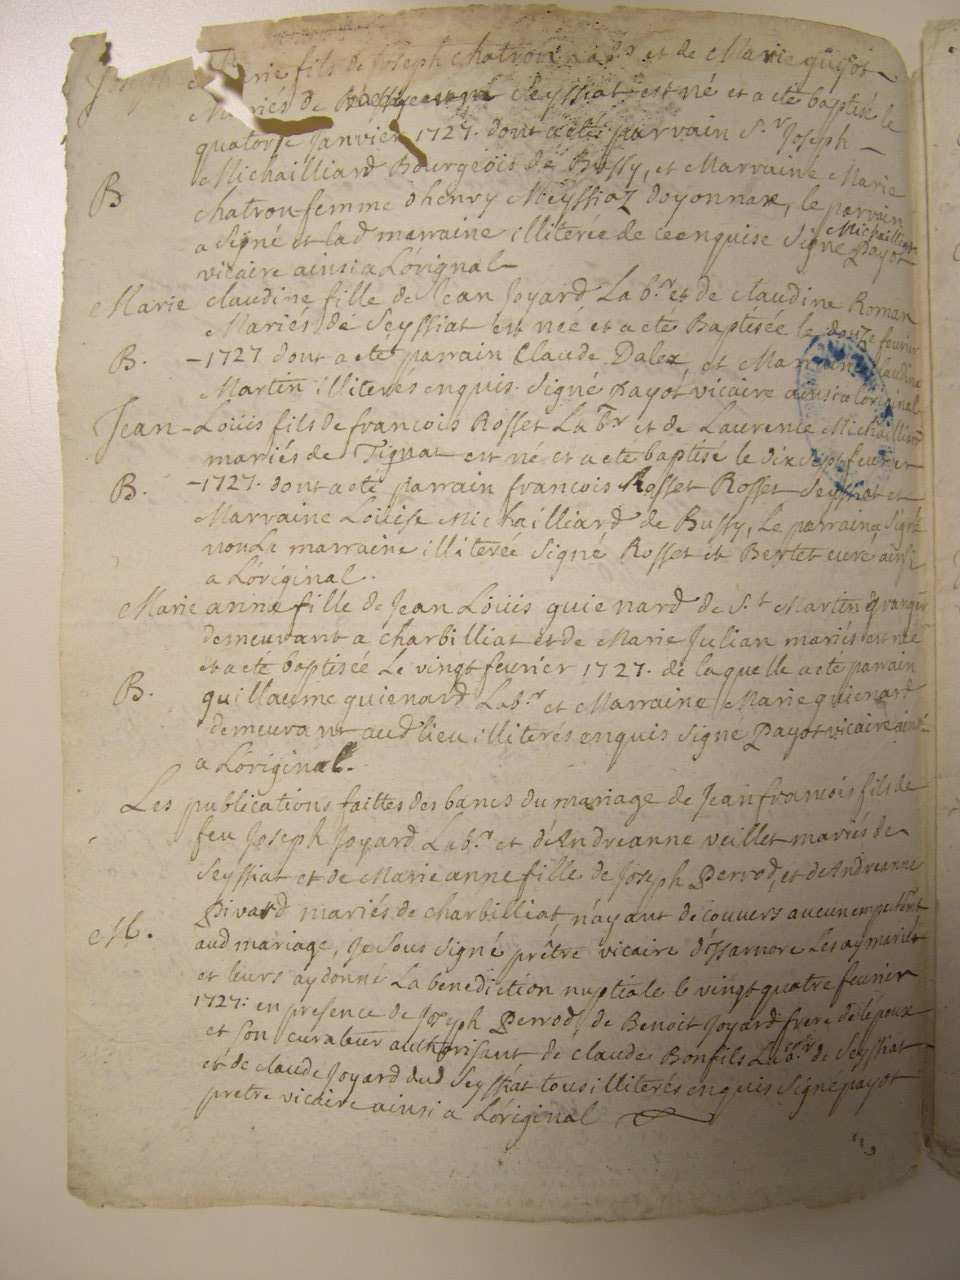 Joseph Marie fils de Joseph Chatron et de Marie guÿot
Mariés de Seyssiat est né et a eté baptisé le
quatorse Janvier 1727. dont a eté parvain S.r Joseph
Michailliard Bourgeois de Bussy, et Marvaine Marie
B
chatron femme d'henry Meyssiaz doyonnax, le parvain
Michailliard
a signé et lad marraine illiterée de ce enquise Signé Payot
vicaire ainsi a Lóriginal
Marie claudine fille de Jean Joyard Lab.r et de claudine Roman
Mariés de Seyssiat est née et a eté Baptisée le douze fevrier
B. -1727 dont a eté parrain Claude Dalex, et Marraine claudine
Martin illiterés enquis. Signé Payot vicaire ainsi a lóriginal
Jean-Loüis fils de francois Rosset Lab.r et de Laurence Michailliard
mariés de Tignat est né et a eté baptisé le dix sept fevrier
B. -1727. dont a eté parrain francois Rosset Rosset Seyssiat et
Marvaine Loüise Michailliard de Bussy, Le parrain a signé
non La marraine illiterée Signé Rosset et Bertet curé, ainsi
a Lóriginal.
Marie anne fille de Jean Loüis guienard de S.t Martin granger
demeurant a charbilliat et de Marie Julian mariés est née
et a eté baptisée Le vingt fevrier 1727. de laquelle a eté parrain
B. guillaume guienard Lab.r et Marraine Marie guienard
demeurant aud lieu illiterés enquis Signé Payot vicaire ainsi
a Lóriginal.
Les publications faittes des bancs du mariage de Jean francois fils de
feu Joseph Joyard Lab.r et d'Andreanne veillet mariés de
Seyssiat et de Marie anne fille de Joseph Perrod, et de Andreanne
Pivard mariés de charbilliat n'ayant découvers aucun empechent
M. aud mariage, Je Sous signé prêtre vicaire d'Isarnore Les ay mariés
et leurs ay donné La bénediction nuptiale le vingt quatre fevrier
1727: en presence de Joseph Perrod, de Benoit Joyard frere de l'époux
et son curateur authorisant de claude Bonfils Lab.r de Seyssiat
et de claude Joyard dud Seyssiat tous illiterés enquis Signe payot
pretre vicaire ainsi a Lóriginal